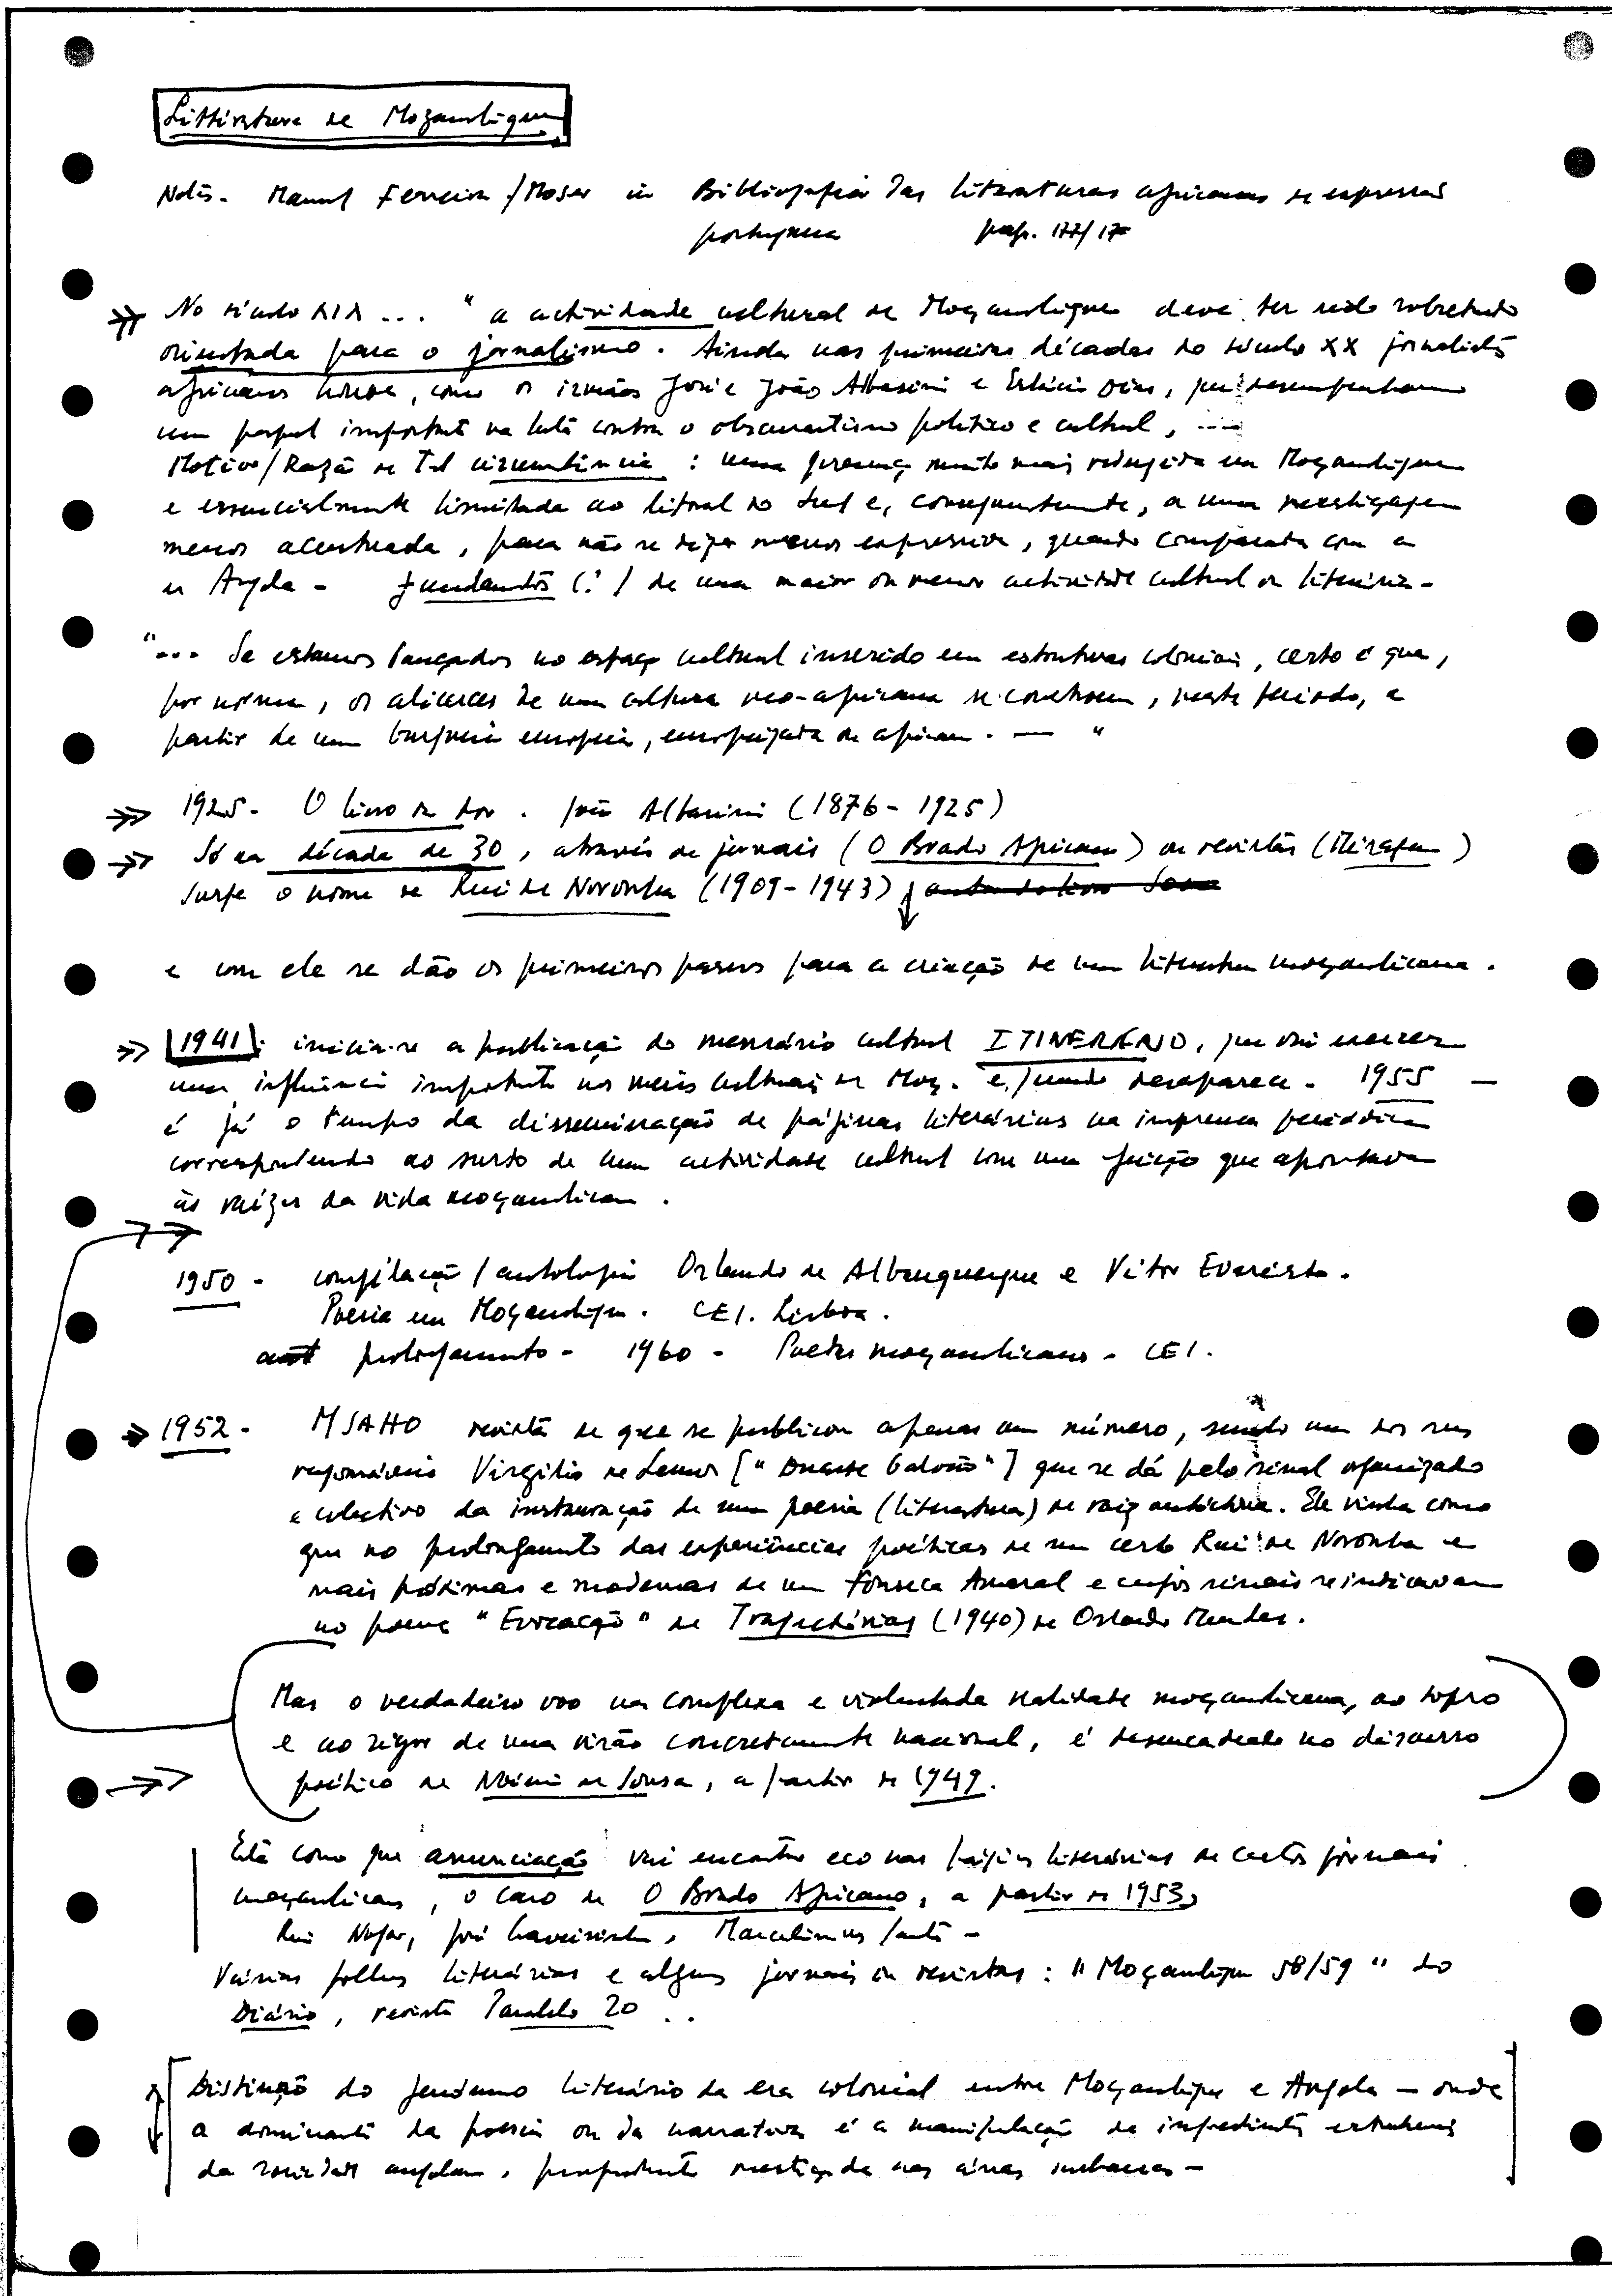 Litteratura de Moçambique
Notas - Manuel Ferreira / Moser in Bibliografia das literaturas africanas de expressão
portuguesa pags. 177/17
No século XIX ... " a actividade cultural de Moçambique deve ter sido sobretudo
orientada para o jornalismo. Ainda nas primeiras décadas do século XX jornalistas
africanos houve, como os irmãos José e João Albasini e Estácio Dias, que desempenharam
um papel importante na luta contra o obscurantismo politico e cultural, ....
Motivo/Razão de Tal circunstância : uma presença muito mais reduzida em Moçambique
e essencialmente limitada ao litoral do Sul e, consequentemente, a uma mestiçagem
menos acentuada, para não se dizer menos expressiva, quando comparada com a
de Angola - fundamentos (?) de uma maior ou menor actividade cultural ou literária -
"... Se estamos lançados no espaço cultural inserido em estruturas coloniais, certo é que,
por norma, os alicerces de uma cultura neo-africana se constroem, neste período, a
partir de uma burguesia europeia, europeizada ou africana. — "
1925 - O livro da dor . João Albasini (1876 - 1925)
Só na década de 30, através de jornais (O Brado Africano) ou revistas (Miragem)
surge o nome de Rui de Noronha (1909 - 1943) autor do livro Sone
e com ele se dão os primeiros passos para a criação de uma literatura moçambicana.
1941: inicia-se a publicação do mensário cultural ITINERÁRIO, que vai exercer
uma influência importante nos meios culturais de Moç. e, quando desaparece - 1955 —
é já o tempo da disseminação de páginas literárias na imprensa periódica
correspondendo ao surto de uma actividade cultural com uma feição que apontava
às raízes da vida moçambicana.
1950 - compilação / antologia Orlando de Albuquerque e Vitor Evaristo.
Poesia em Moçambique. CEI. Lisboa.
prolongamento - 1960 - Poetas moçambicanos - CEI.
1952 - MSAHO revista de que se publicou apenas um número, sendo um dos seus
responsáveis Virgilio de Lemos ["Duarte Galvão"] que se dá pelo sinal organizado
e colectivo da instauração de uma poesia (literatura) de raiz autóctone. Ele vinha como
que no prolongamento das experiências poéticas de um certo Rui de Noronha e
mais próximas e modernas de um Fonseca Amaral e cujos sinais se indicavam
no poema "Evocação" de Trajectórias (1940) de Orlando Mendes.
Mas o verdadeiro voo na complexa e violentada realidade moçambicana, ao sopro
e ao rigor de uma visão concretamente nacional, é desencadeado no discurso
poético de Noémia de Sousa, a partir de 1949.
Esta como que anunciação vai encontrar eco nas páginas literárias de certos jornais
moçambicanos, o caso de O Brado Africano, a partir de 1953,
Rui Nogar, José Craveirinha, Marcelino dos Santos -
Várias folhas literárias e alguns jornais ou revistas : "Moçambique 58/59" do
Diário, revista Paralelo 20 ..
Distinção do fenómeno literário da era colonial entre Moçambique e Angola — onde
a dominante da poesia ou da narrativa é a manipulação de ingredientes estruturais
da sociedade angolana, mestiçada nas áreas urbanas —